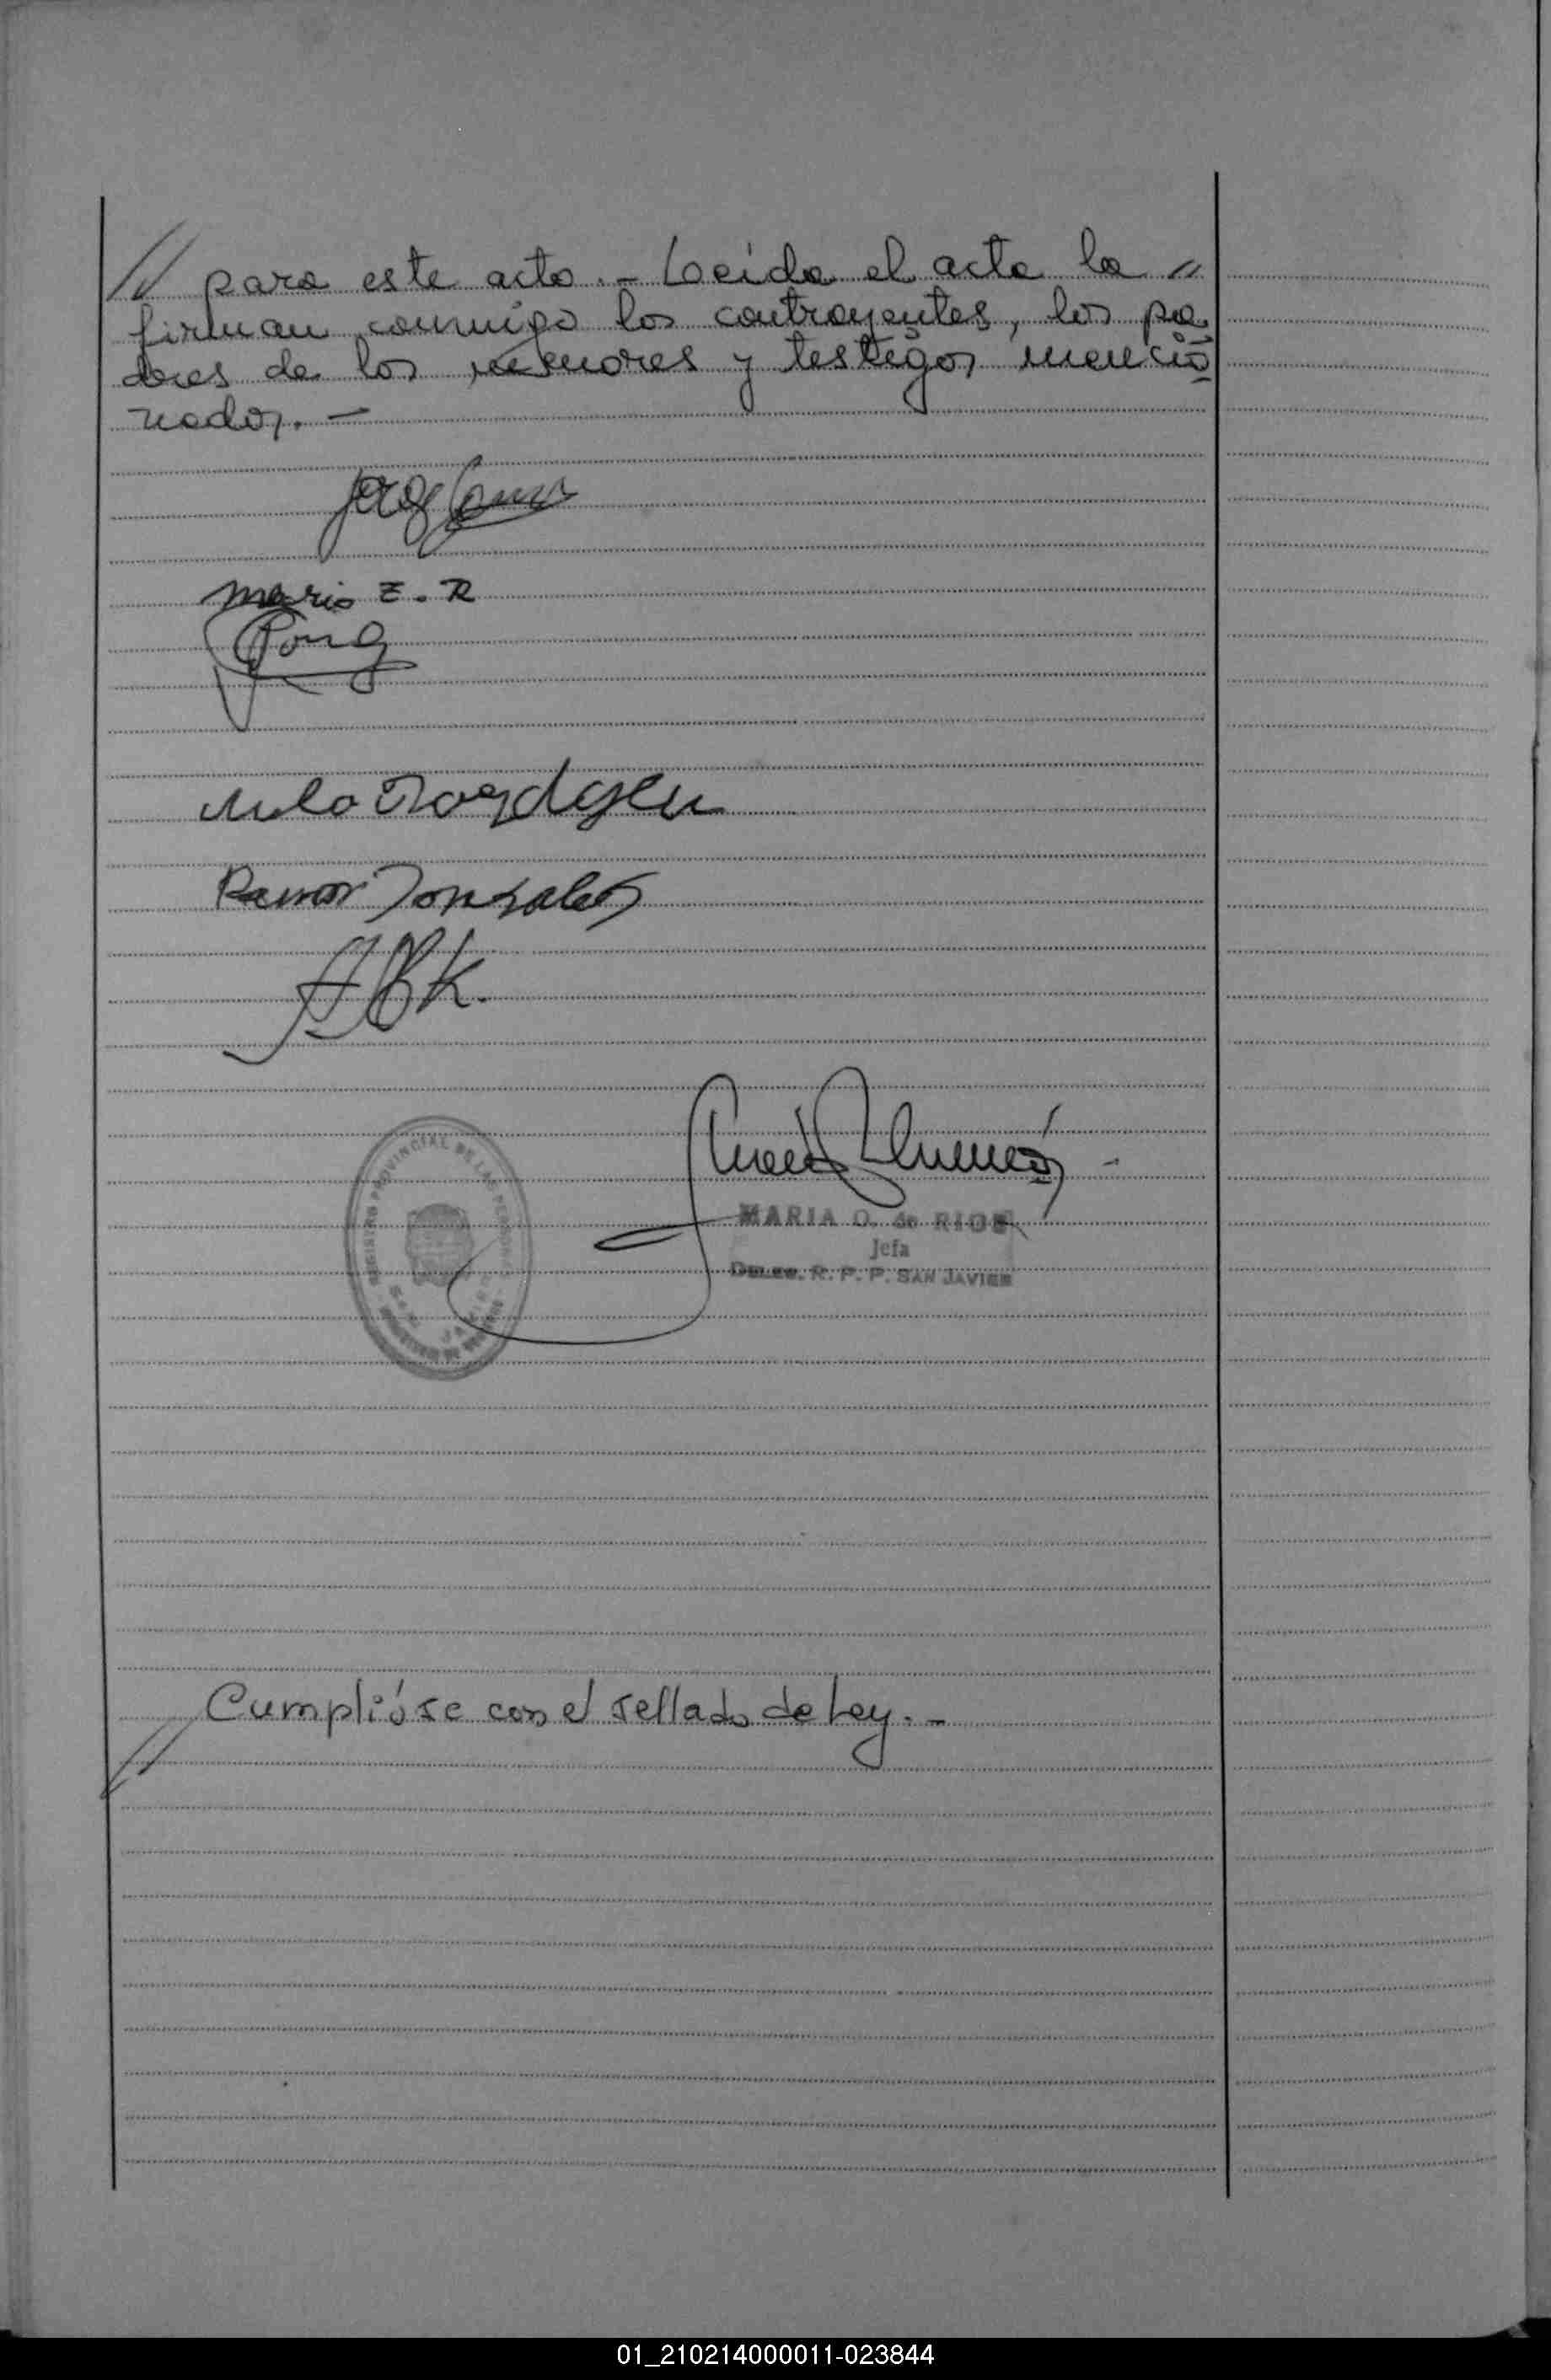 // para este acto.- Leida el acta la //
firman conmigo los contrayentes, los pa
dres de los menores y testigos mencio
nados.-
Maria E. R
Ramon Gonzalez
REGISTRO PROVINCIAL DE LAS PERSONAS
SAN JAVIER
MARIA O. de RIOS
Jefa
DELEG. R. P. P. SAN JAVIER
Cumplióse con el sellado de Ley.-
//
01_210214000011-023844